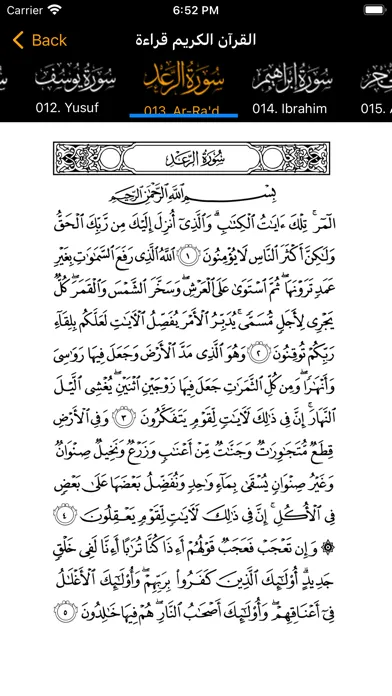 Carrier 6:52 PM
Back القرآن الكريم قراءة
سورة يوسف سورة الرعد سورة إبراهيم
012. Yusuf 013. Ar-Ra'd 014. Ibrahim 015. A
سُورَةُ الرَّعْدِ
بِسْمِ اللَّهِ الرَّحْمَٰنِ الرَّحِيمِ
الٓمٓرۚ تِلۡكَ ءَايَٰتُ ٱلۡكِتَٰبِۗ وَٱلَّذِيٓ أُنزِلَ إِلَيۡكَ مِن رَّبِّكَ ٱلۡحَقُّ
وَلَٰكِنَّ أَكۡثَرَ ٱلنَّاسِ لَا يُؤۡمِنُونَ ١ ٱللَّهُ ٱلَّذِي رَفَعَ ٱلسَّمَٰوَٰتِ بِغَيۡرِ
عَمَدٖ تَرَوۡنَهَاۖ ثُمَّ ٱسۡتَوَىٰ عَلَى ٱلۡعَرۡشِۖ وَسَخَّرَ ٱلشَّمۡسَ وَٱلۡقَمَرَۖ كُلّٞ
يَجۡرِي لِأَجَلٖ مُّسَمّٗىۚ يُدَبِّرُ ٱلۡأَمۡرَ يُفَصِّلُ ٱلۡأٓيَٰتِ لَعَلَّكُم بِلِقَآءِ
رَبِّكُمۡ تُوقِنُونَ ٢ وَهُوَ ٱلَّذِي مَدَّ ٱلۡأَرۡضَ وَجَعَلَ فِيهَا رَوَٰسِيَ
وَأَنۡهَٰرٗاۖ وَمِن كُلِّ ٱلثَّمَرَٰتِ جَعَلَ فِيهَا زَوۡجَيۡنِ ٱثۡنَيۡنِۖ يُغۡشِي ٱلَّيۡلَ
ٱلنَّهَارَۚ إِنَّ فِي ذَٰلِكَ لَأٓيَٰتٖ لِّقَوۡمٖ يَتَفَكَّرُونَ ٣ وَفِي ٱلۡأَرۡضِ
قِطَعٞ مُّتَجَٰوِرَٰتٞ وَجَنَّٰتٞ مِّنۡ أَعۡنَٰبٖ وَزَرۡعٞ وَنَخِيلٞ صِنۡوَانٞ
وَغَيۡرُ صِنۡوَانٖ يُسۡقَىٰ بِمَآءٖ وَٰحِدٖ وَنُفَضِّلُ بَعۡضَهَا عَلَىٰ بَعۡضٖ
فِي ٱلۡأُكُلِۚ إِنَّ فِي ذَٰلِكَ لَأٓيَٰتٖ لِّقَوۡمٖ يَعۡقِلُونَ ٤
۞ وَإِن تَعۡجَبۡ فَعَجَبٞ قَوۡلُهُمۡ أَءِذَا كُنَّا تُرَٰبًا أَءِنَّا لَفِي خَلۡقٖ
جَدِيدٍۗ أُوْلَٰٓئِكَ ٱلَّذِينَ كَفَرُواْ بِرَبِّهِمۡۖ وَأُوْلَٰٓئِكَ ٱلۡأَغۡلَٰلُ
فِيٓ أَعۡنَاقِهِمۡۖ وَأُوْلَٰٓئِكَ أَصۡحَٰبُ ٱلنَّارِۖ هُمۡ فِيهَا خَٰلِدُونَ ٥